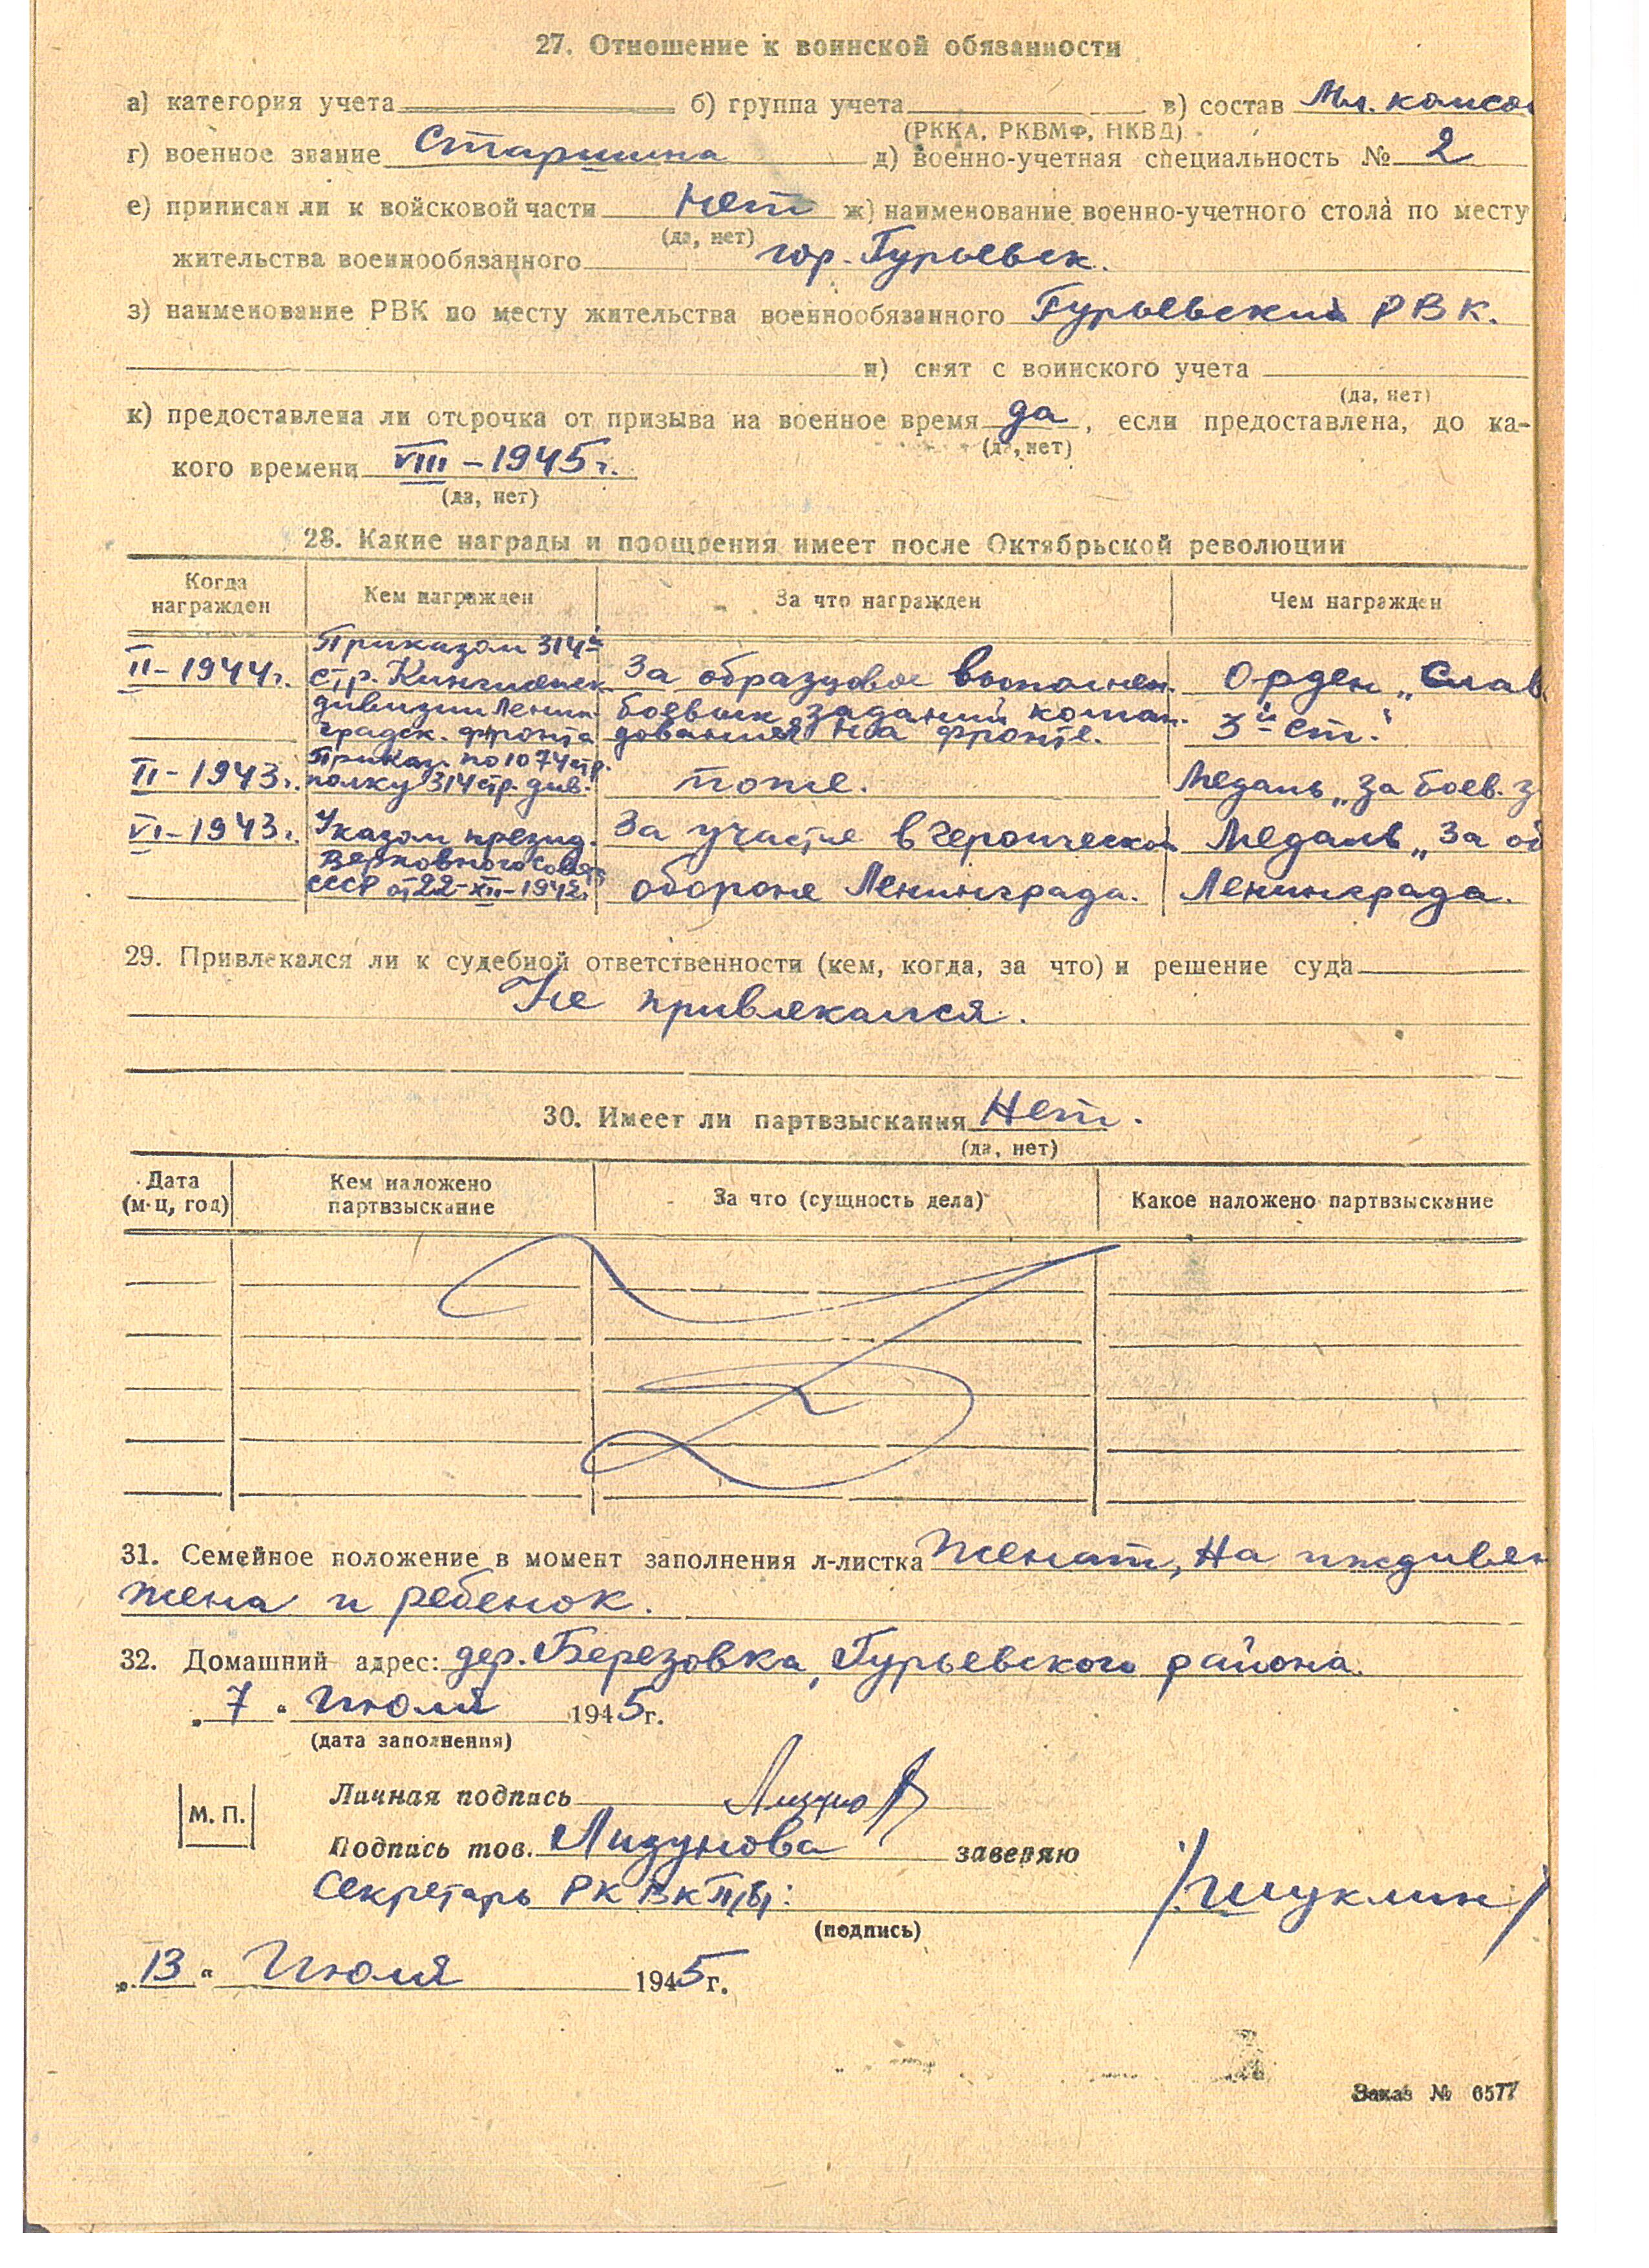 27. Отношение к воинской обязанности
а) категория учета б) группа учета в) состав Мл. комсо
(РККА, РКВМФ, НКВД)
г) военное звание Старшина д) военно-учетная специальность № 2
е) приписан ли к войсковой части Нет ж) наименование военно-учетного стола по месту
(да, нет)
жительства военнообязанного гор. Гурьевск.
з) наименование РВК по месту жительства военнообязанного Гурьевский РВК.
и) снят с воинского учета
(да, нет)
к) предоставлена ли отсрочка от призыва на военное время да, если предоставлена, до ка-
(да, нет)
кого времени VIII – 1945 г.
(да, нет)
28. Какие награды и поощрения имеет после Октябрьской революции
Когда награжден Кем награжден За что награжден Чем награжден
Приказом 314й
II – 1944 г. стр. Кингисепск За образцовое выполнен. Орден „Слав
дивизии Ленин- боевых заданий коман-
градск. фронта дования на фронте. 3й ст."
Приказ. по 1074 стр.
II – 1943 г. полку 314 стр. див. тоже. Медаль „За боев. з
VI – 1943 г. Указом презид. За участие в героической Медаль „За об
Верховного Совета
СССР от 22-XII-1942 г. обороне Ленинграда. Ленинграда.
29. Привлекался ли к судебной ответственности (кем, когда, за что) и решение суда
Не привлекался.
30. Имеет ли партвзыскания Нет.
(да, нет)
Дата (м-ц, год) Кем наложено партвзыскание За что (сущность дела) Какое наложено партвзыскание
31. Семейное положение в момент заполнения л-листка Женат, На иждивен
жена и ребенок.
32. Домашний адрес: дер. Березовка, Гурьевского района.
„7" Июля 1945 г.
(дата заполнения)
М. П.
Личная подпись
Подпись тов. Лизунова заверяю
Секретарь РК ВКП(б):
(подпись)
„13" Июля 1945 г.
Заказ № 6577